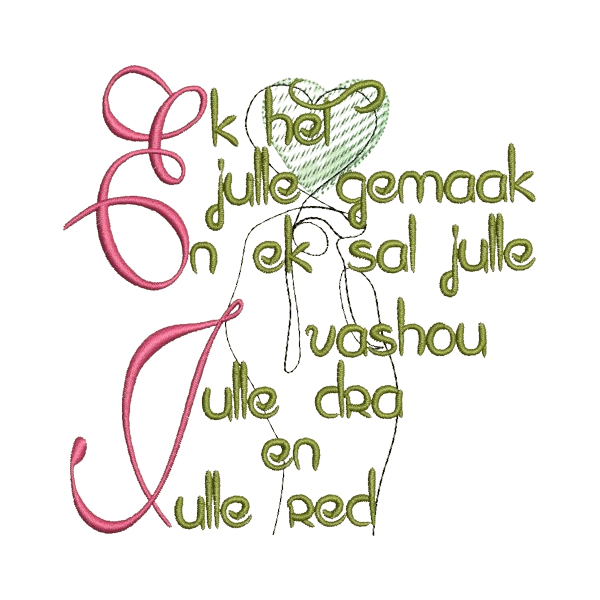 Ek het
julle gemaak
En ek sal julle
vashou
Julle dra
en
Julle red